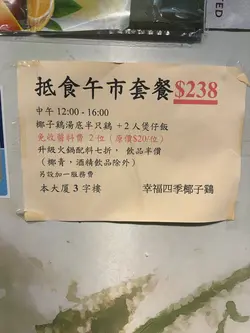 抵食午市套餐$238
中午 12:00 - 16:00
椰子鷄湯底半只鷄 +2 人煲仔飯
免收醬料費 2 位 (原價$20/位)
升級火鍋配料七折, 飲品半價
(椰青,酒精飲品除外)
另設加一服務費
本大厦 3 字樓 幸福四季椰子鷄